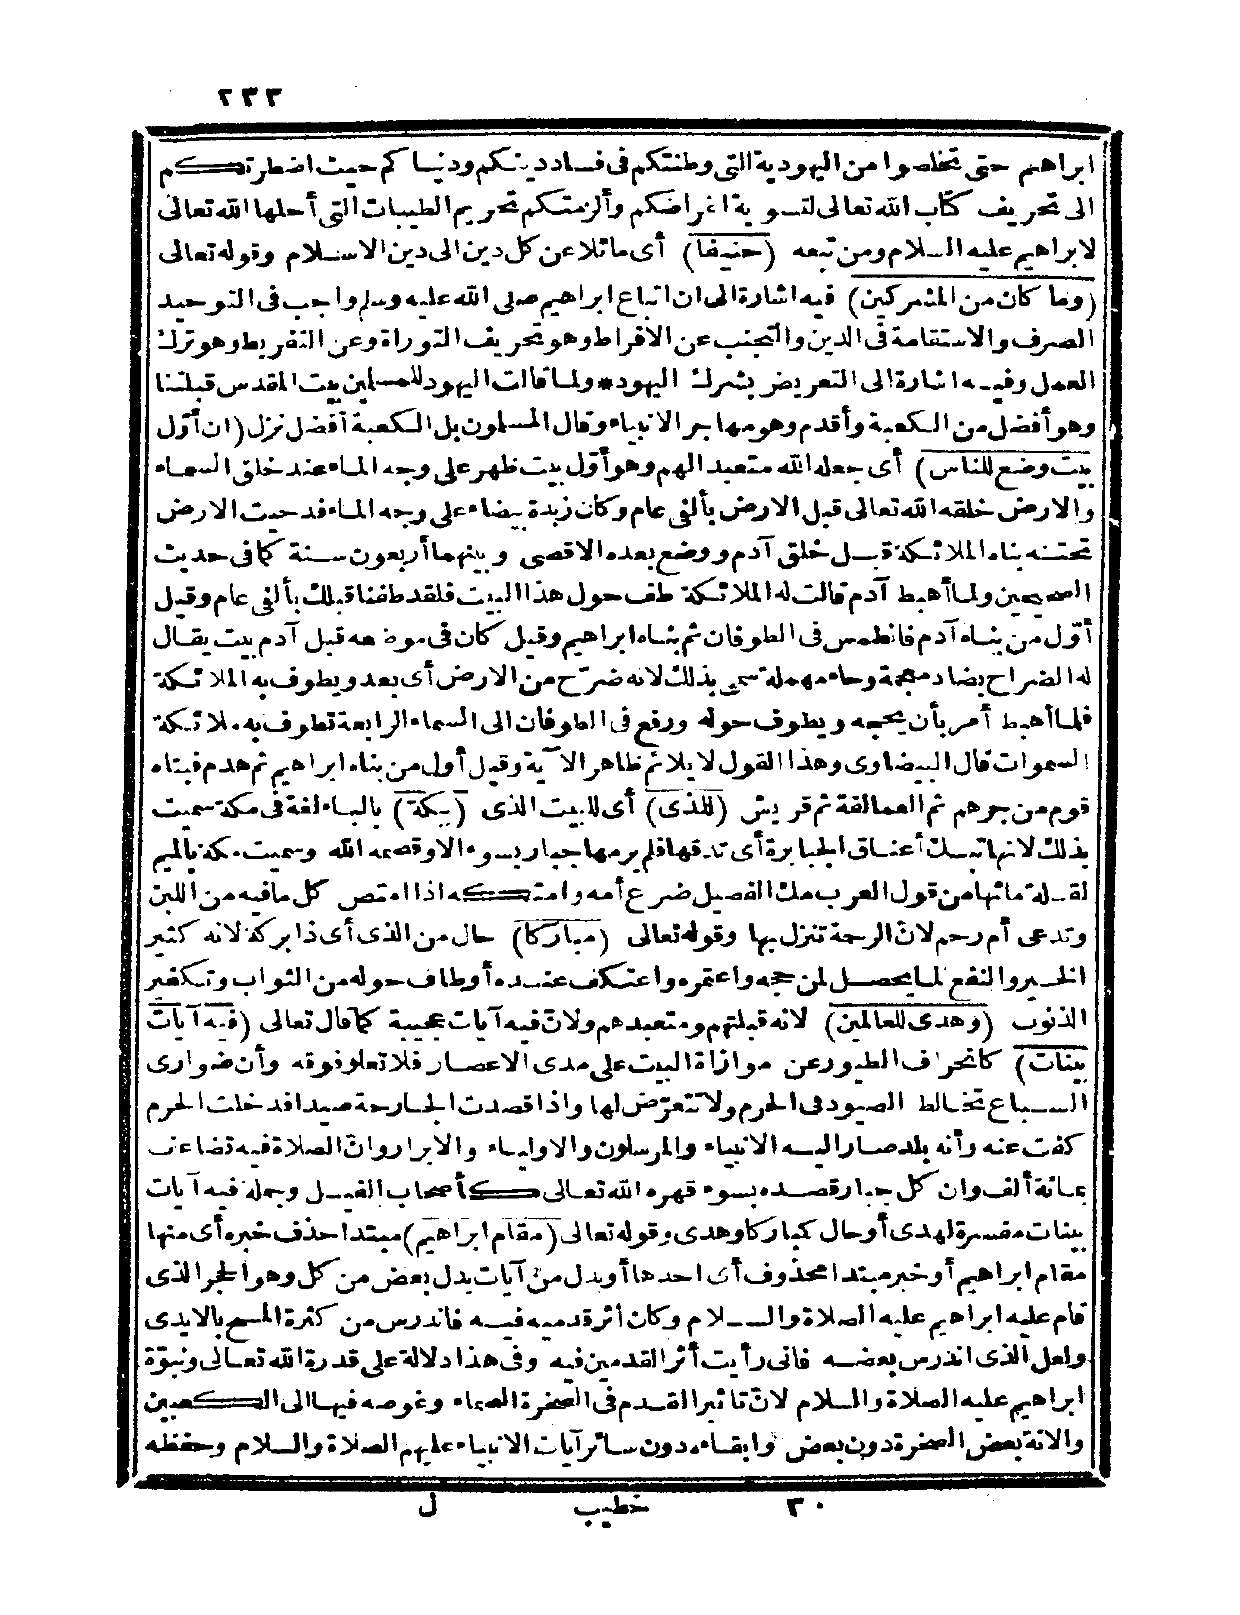 ٢٣٣
ابراهيم حتى تخلصوا من اليهودية التى وطنتكم فى فساد دينكم ودنيا كم حيث اضطرتكم
الى تحريف كتاب الله تعالى لتسوية اغراضكم وألزمتكم تحريم الطيبات التى أحلها الله تعالى
لابراهيم عليه السلام ومن تبعه (حنيفا) أى مائلا عن كل دين الى دين الاسلام وقوله تعالى
(وما كان من المشركين) فيه اشارة الى ان اتباع ابراهيم صلى الله عليه وسلم واجب فى التوحيد
الصرف والاستقامة فى الدين والتجنب عن الافراط وهو تحريف التوراة وعن التفريط وهو ترك
العمل وفيه اشارة الى التعريض بشرك اليهود * ولما قالت اليهود للمسلمين بيت المقدس قبلتنا
وهو أفضل من الكعبة وأقدم وهو مهاجر الانبياء وقال المسلمون بل الكعبة أفضل نزل (ان أوّل
بيت وضع للناس) أى جعله الله متعبد الهم وهو أوّل بيت ظهر على وجه الماء عند خلق السماء
والارض خلقه الله تعالى قبل الارض بألفى عام وكان زبدة بيضاء على وجه الماء فدحيت الارض
تحته بناه الملائكة قبل خلق آدم ووضع بعده الاقصى وبينهما أربعون سنة كما فى حديث
الصحيحين ولما أهبط آدم قالت له الملائكة طف حول هذا البيت فلقد طفنا قبلك بألفى عام وقيل
أوّل من بناه آدم فانطمس فى الطوفان ثم بناه ابراهيم وقيل كان فى موضعه قبل آدم بيت يقال
له الضراح بضاد معجمة وحاء مهملة سمى بذلك لانه ضرح من الارض أى بعد ويطوف به الملائكة
فلما أهبط أمر بأن يحجه ويطوف حوله ورفع فى الطوفان الى السماء الرابعة تطوف به ملائكة
السموات قال البيضاوى وهذا القول لا يلائم ظاهر الآية وقيل أول من بناه ابراهيم ثم هدم فبناه
قوم من جرهم ثم العمالقة ثم قريش (للذى) أى للبيت الذى (ببكة) بالباء لغة فى مكة سميت
بذلك لانها تبك أعناق الجبابرة أى تدقها فلم يرمها جبار بسوء الا وقصمه الله وسميت مكة بالميم
لقلة مائها من قول العرب مك الفصيل ضرع أمه وامتكه اذا امتص كل ما فيه من اللبن
وتدعى أم رحم لانّ الرحمة تنزل بها وقوله تعالى (مباركا) حال من الذى أى ذا بركة لانه كثير
الخير والنفع لما يحصل لمن حجه واعتمره واعتكف عنده أو طاف حوله من الثواب وتكفير
الذنوب (وهدى للعالمين) لانه قبلتهم ومتعبدهم ولانّ فيه آيات عجيبة كما قال تعالى (فيه آيات
بينات) كانحراف الطيور عن موازاة البيت على مدى الاعصار فلا تعلو فوقه وأن ضوارى
السباع تخالط الصيود فى الحرم ولا تتعرّض لها واذا قصدت الجارحة صيدا فدخلت الحرم
كفت عنه وأنه بلد صار اليه الانبياء والمرسلون والاولياء والابرار وانّ الصلاة فيه تضاعف
بمائة ألف وان كل جبار قصده بسوء قهره الله تعالى كأصحاب الفيل وجملة فيه آيات
بينات مفسرة لهدى أو حال كمباركا وهدى وقوله تعالى (مقام ابراهيم) مبتدا حذف خبره أى منها
مقام ابراهيم أو خبر مبتدا محذوف أى احدها أو بدل من آيات بدل بعض من كل وهو الحجر الذى
قام عليه ابراهيم عليه الصلاة والسلام وكان أثر قدميه فيه فاندرس من كثرة المسح بالايدى
ولعل الذى اندرس بعضه فانى رأيت أثر القدمين فيه وفى هذا دلالة على قدرة الله تعالى ونبوّة
ابراهيم عليه الصلاة والسلام لانّ تاثير القدم فى الصخرة الصماء وغوصه فيها الى الكعبين
والانة بعض الصخرة دون بعض وابقاءه دون سائر آيات الانبياء عليهم الصلاة والسلام وحفظه
٣٠ خطيب ل